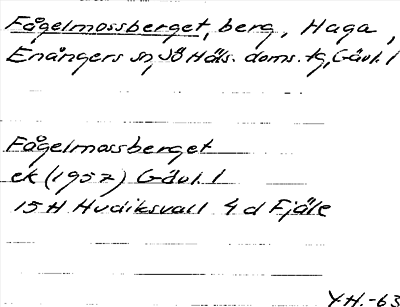 Fågelmossberget, berg, Haga,
Enångers sn, SÖ Häls. doms. tg, Gävl. l
Fågelmossberget
ek (1957) Gävl. l
15H Hudiksvall 4 d Fjäle
YH.-63